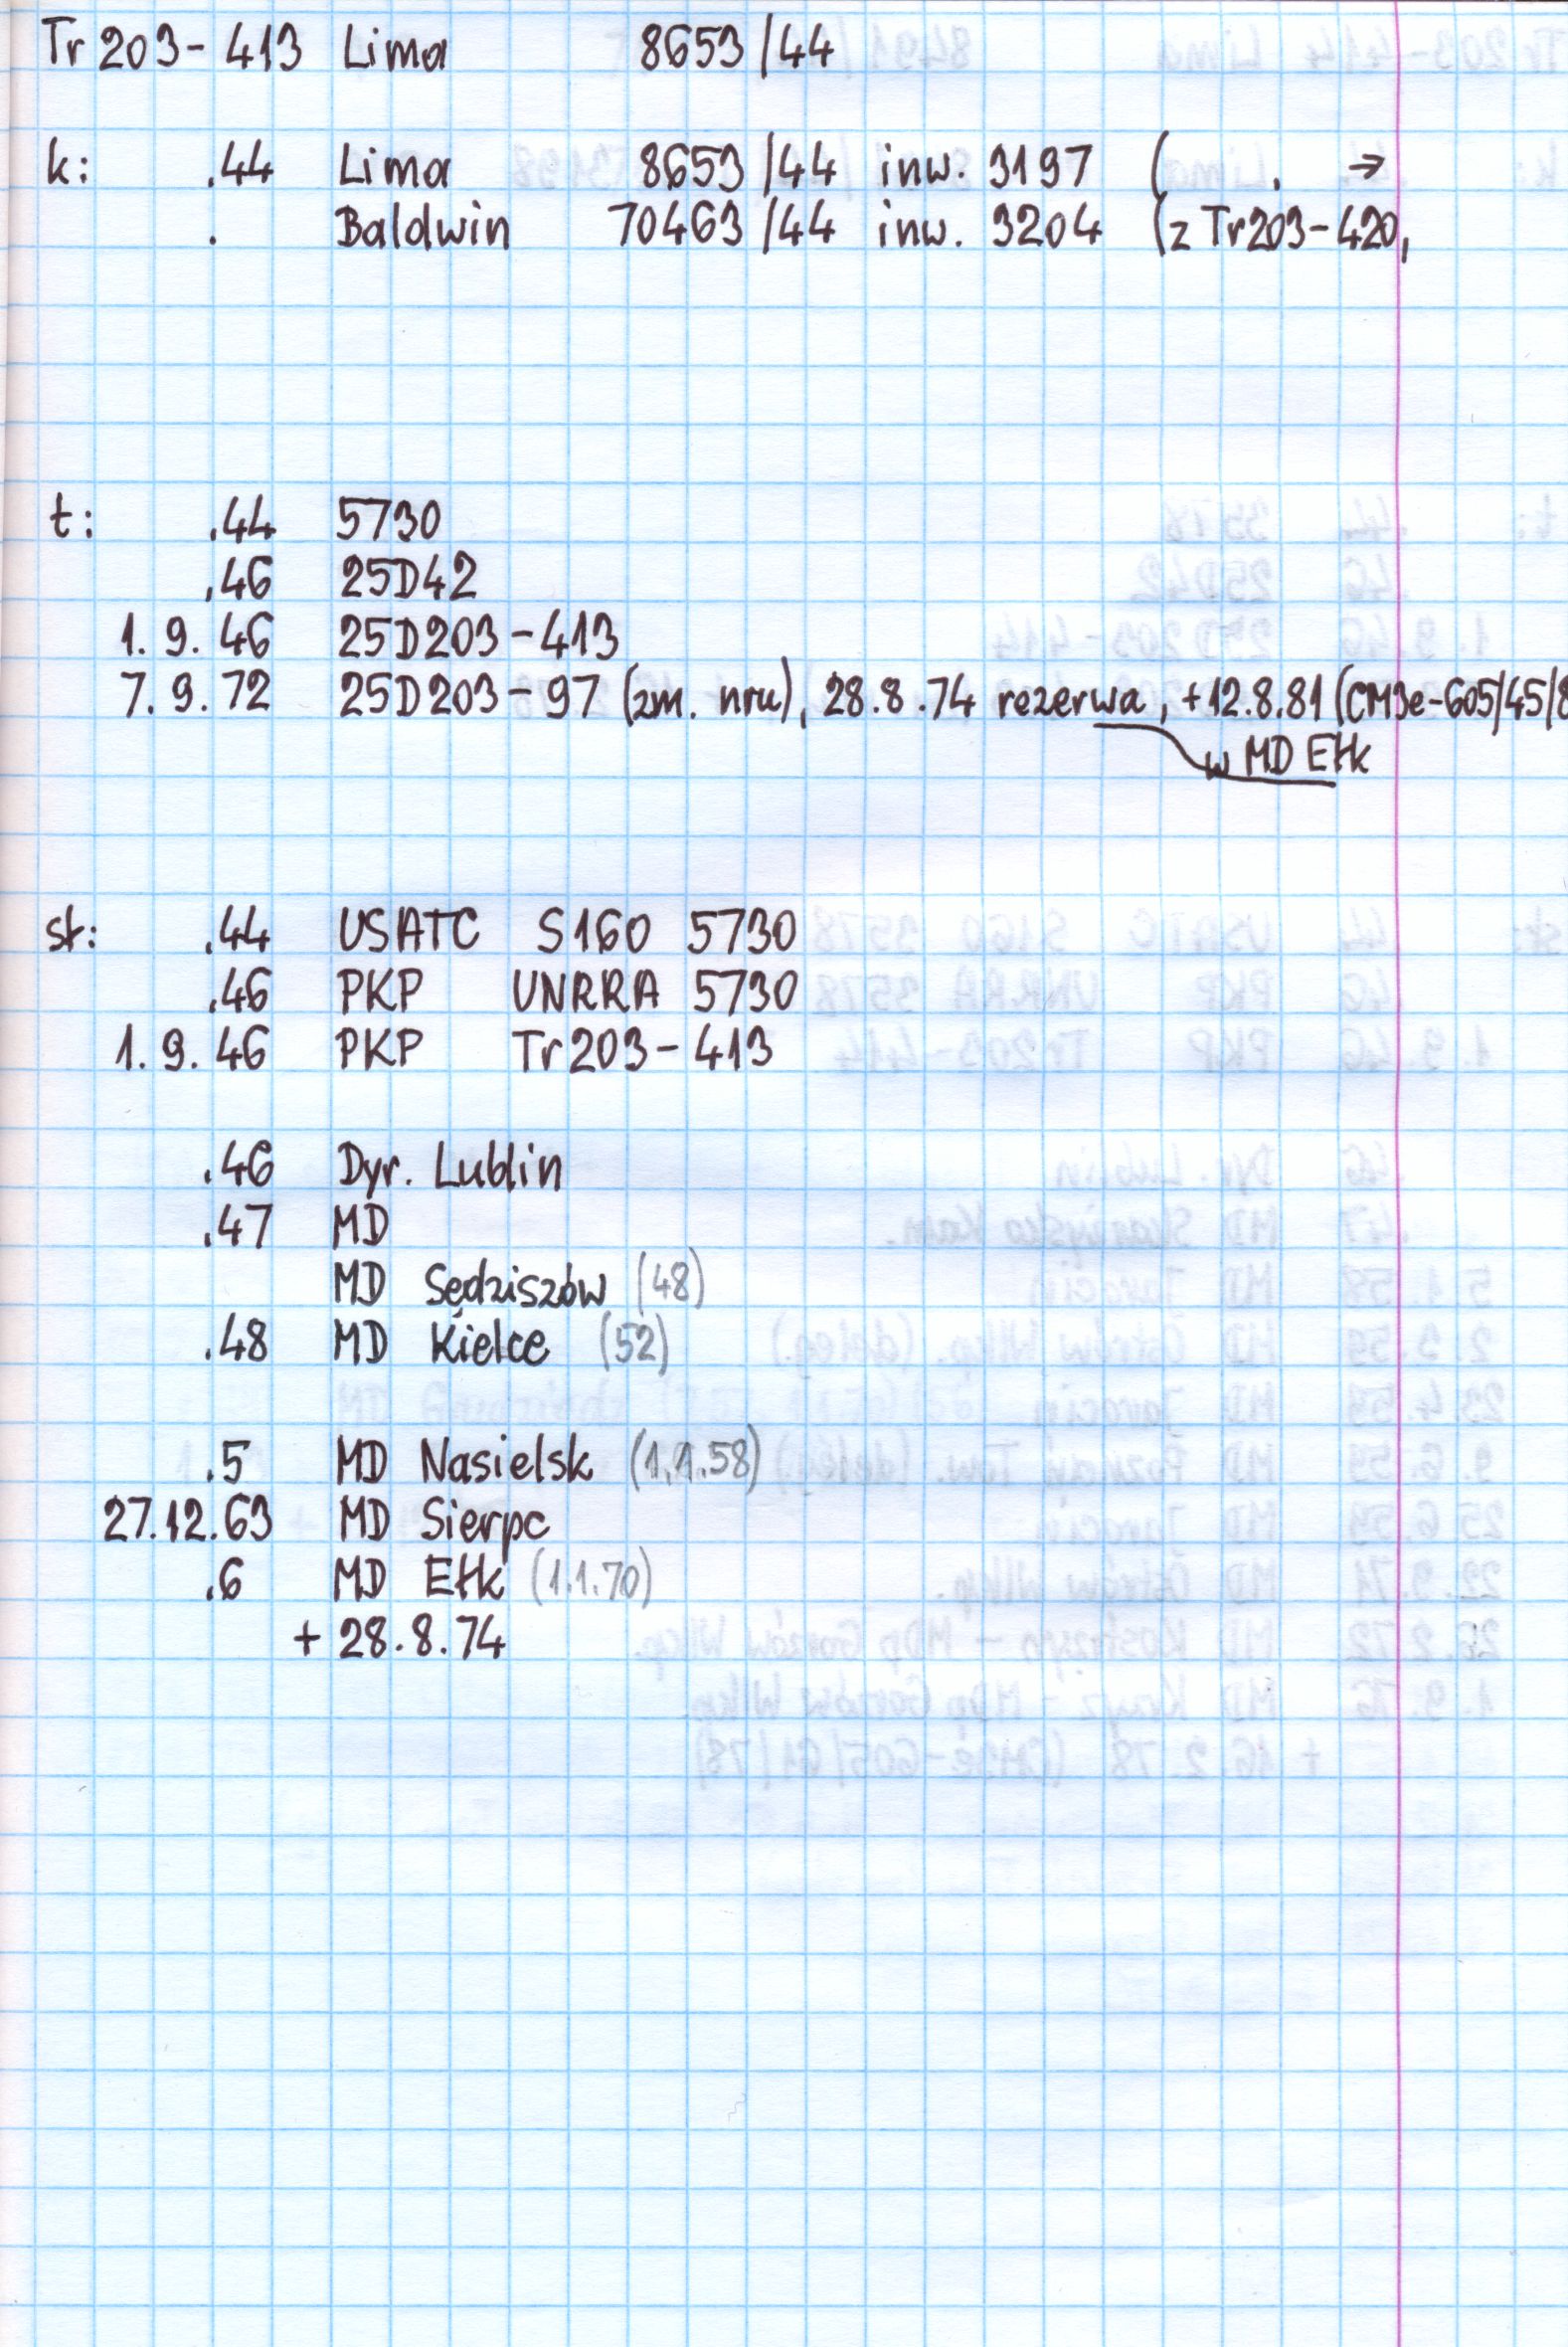 Tr203-413 Lima 8653/44
k: .44 Lima 8653/44 inw. 3197 ( . →
. Baldwin 70463/44 inw. 3204 (z Tr203-420,
t: .44 5730
.46 25D42
1.9.46 25D203-413
7.9.72 25D203-97 (zm. nru), 28.8.74 rezerwa, +12.8.81 (CM3e-605/45/8
w MD Ełk
st: .44 USATC S160 5730
.46 PKP UNRRA 5730
1.9.46 PKP Tr203-413
.46 Dyr. Lublin
.47 MD
MD Sędziszów (48)
.48 MD Kielce (52)
.5 MD Nasielsk (1.1.58)
27.12.63 MD Sierpc
.6 MD Ełk (1.1.70)
+ 28.8.74